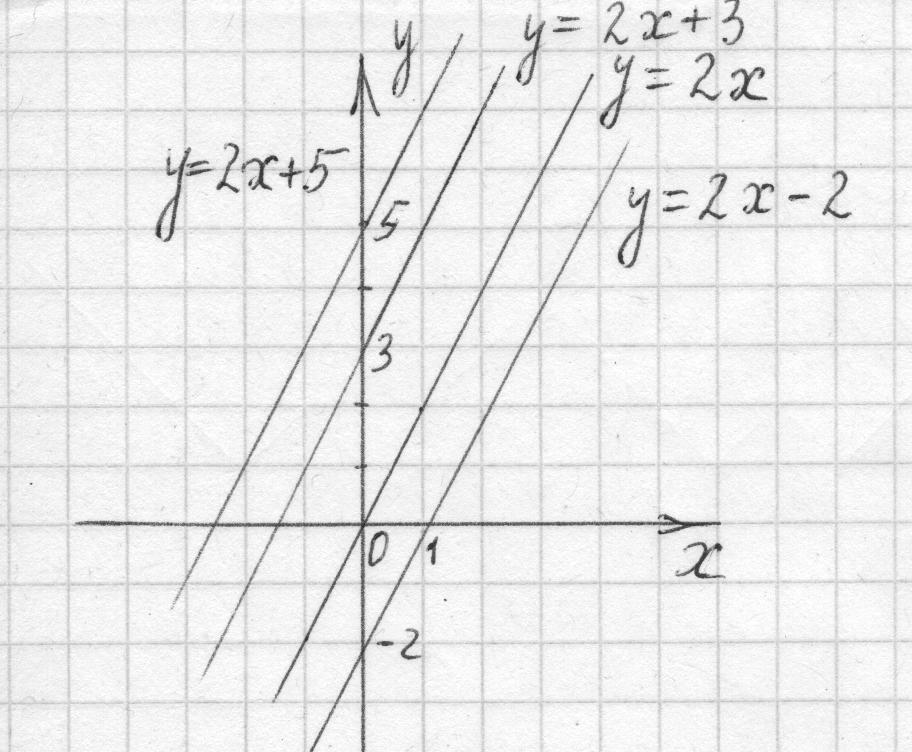 y
y = 2x + 3
y = 2x
y = 2x + 5
y = 2x - 2
5
3
0
1
x
-2